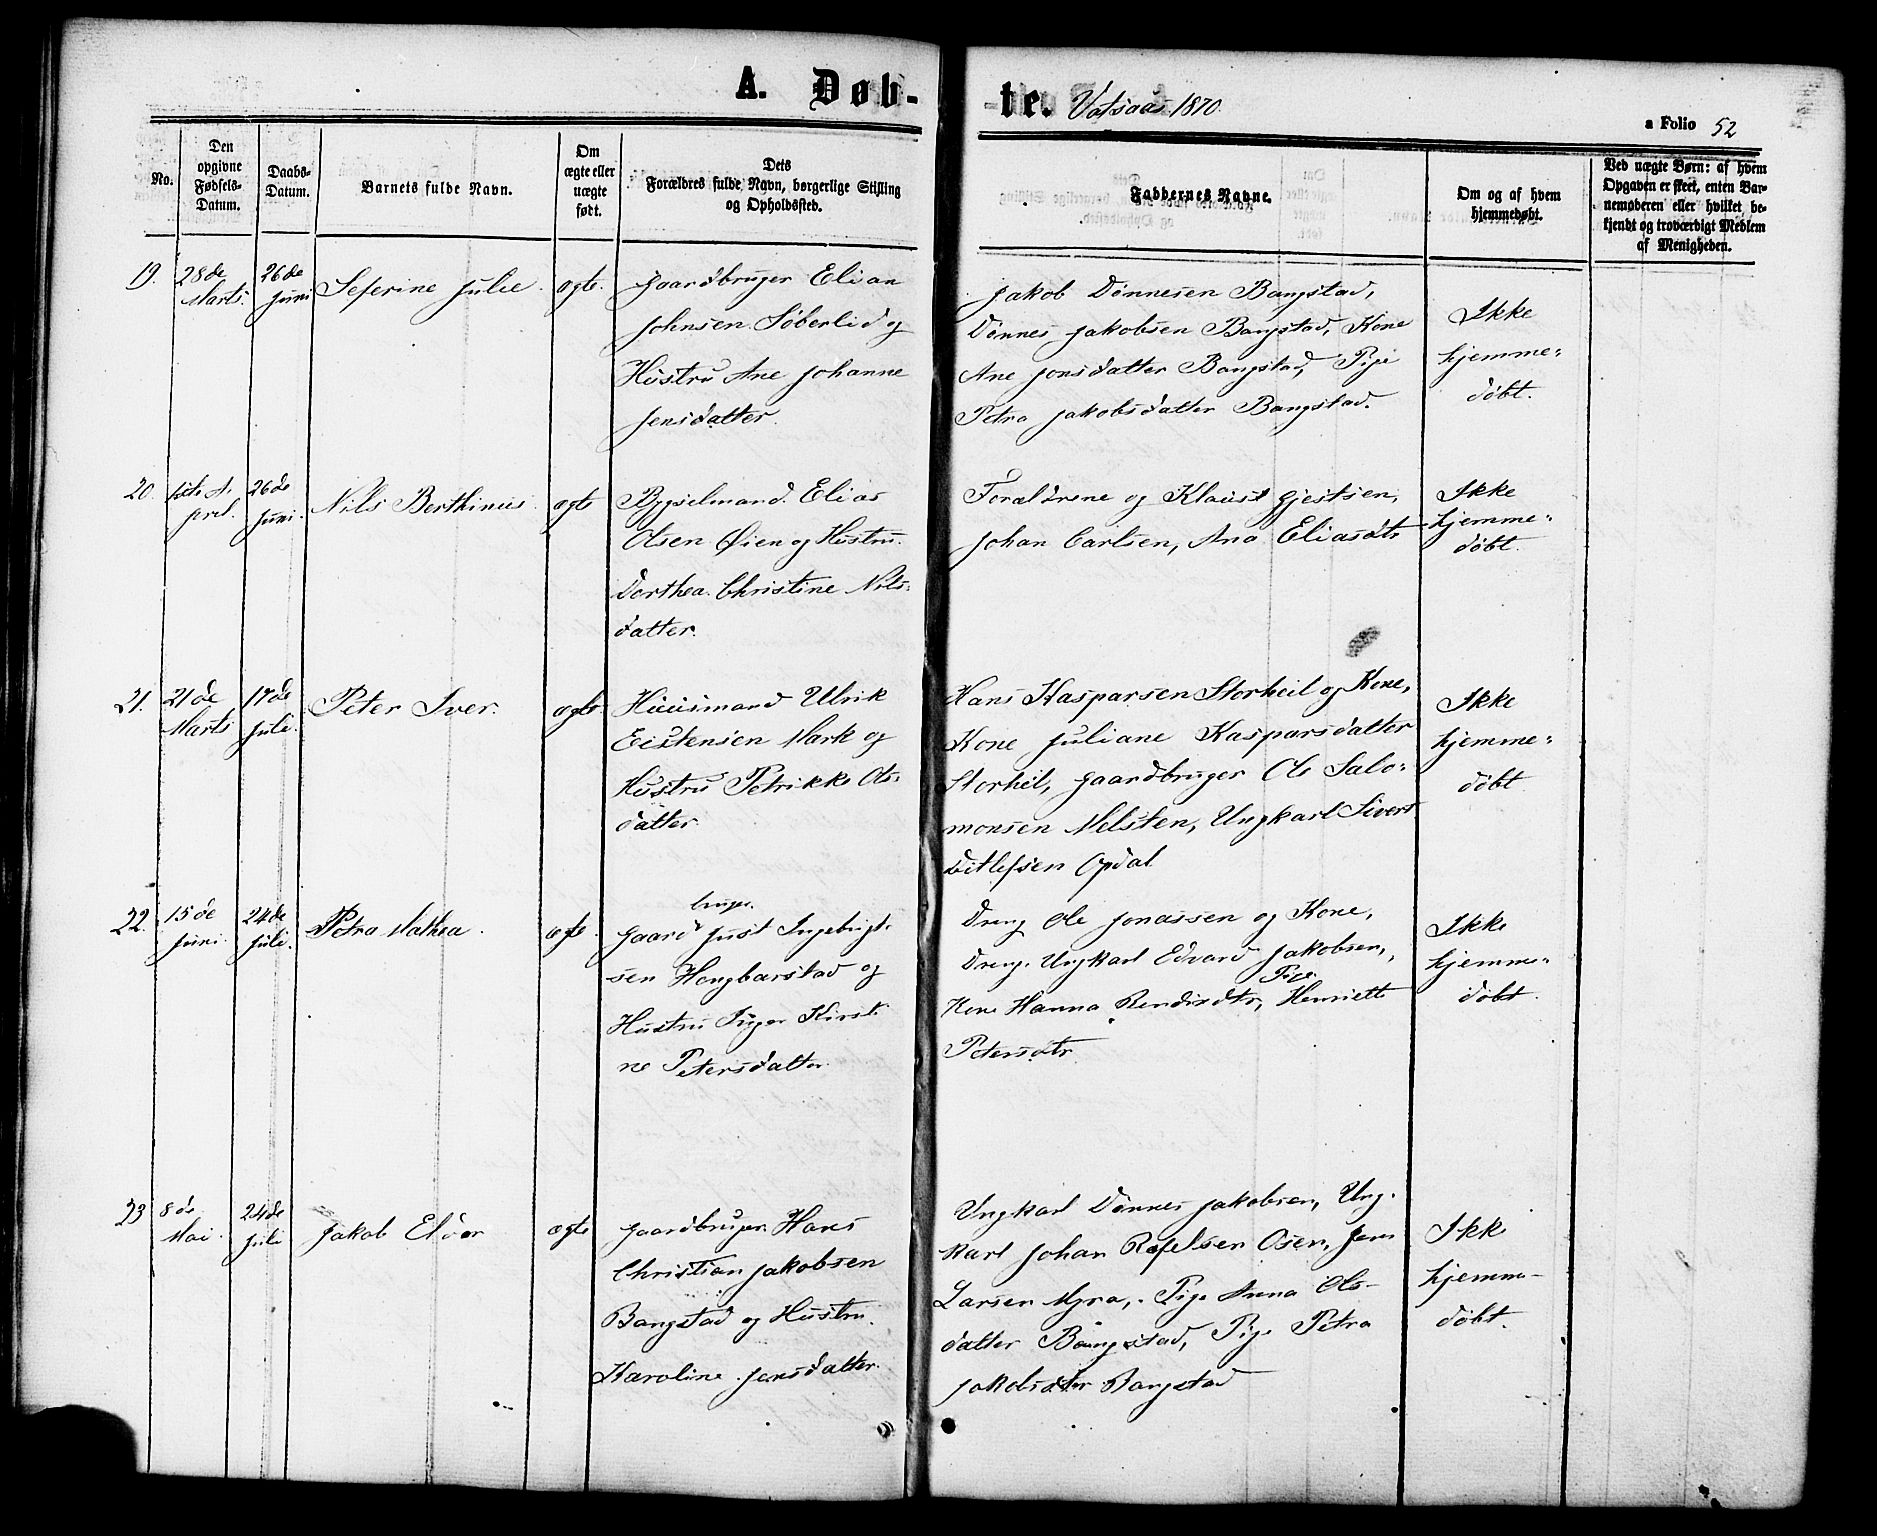 A. Døb-
te. Vatsaas 1870.
a Folio 52
No.
Den
opgivne
Fødsels-
Datum.
Daabs-
Datum.
Barnets fulde Navn.
Om
ægte eller
uægte
født.
Dets
Forældres fulde Navn, borgerlige Stilling
og Opholdssted.
Faddernes Navne.
Om og af hvem
hjemmedøbt.
Ved uægte Børn: af hvem
Opgaven er skeet, enten Bar-
nemoderen eller hvilket be-
kjendt og troværdigt Medlem
af Menigheden.
19.
28de
Marts.
26de
Juni
Seferine Julie.
ægte.
Gaardbruger Elian
Johnsen Søberlid og
Hustru Ane Johanne
Jensdatter.
Jakob Dønnesen Bangstad,
Dønnes Jakobsen Bangstad, Kone
Ane Jonsdatter Bangstad, Pige
Petra Jakobsdatter Bangstad.
Ikke
hjemme=
døbt.
20.
1ste A-
pril.
26de
Juni.
Nils Berthinus.
ægte
Bygselmand Elias
Olsen Øien og Hustru
Dorthea Christine Nils-
datter.
Forældrene og Klaus Gjertsen,
Johan Carlsen, Ana Eliasdtr
Ikke
hjemme=
døbt.
21.
21de
Marts
17de
Juli.
Peter Iver.
ægte
Huusmand Ulrik
Eistensen Mark og
Hustru Petrikke Ols-
datter.
Hans Kaspersen Storheil og Kone,
Kone Juliane Kaspersdatter
Storheil, Gaardbruger Ole Salo-
monsen Melsten, Ungkarl Sivert
Ditlefsen Opdal
Ikke
hjemme=
døbt
22.
15de
Juni.
24de
Juli.
Petra Mathea.
ægte.
bruger
Gaard Just Ingebrigt-
sen Hongbarstad og
Hustru Inger Kirsti
ne Petersdatter.
Dreng Ole Jonassen og Kone,
Dreng. Ungkarl Edvard Jakobsen,
Pige
Kone Hanna Bendixdtr, Henriette
Petersdtr.
Ikke
hjemme=
døbt.
23
8de
Mai.
24de
Juli
Jakob Eldor
ægte
Gaardbruger Hans
Christian Jakobsen
Bangstad og Hustru
Karoline Jensdatter.
Ungkarl Dønnes Jakobsen, Ung-
karl Johan Rafelsen Osen, Jens
Larsen Myra, Pige Anna Ols-
datter Bangstad, Pige Petra
Jakobsdtr Bangstad
Ikke
hjemme-
døbt.